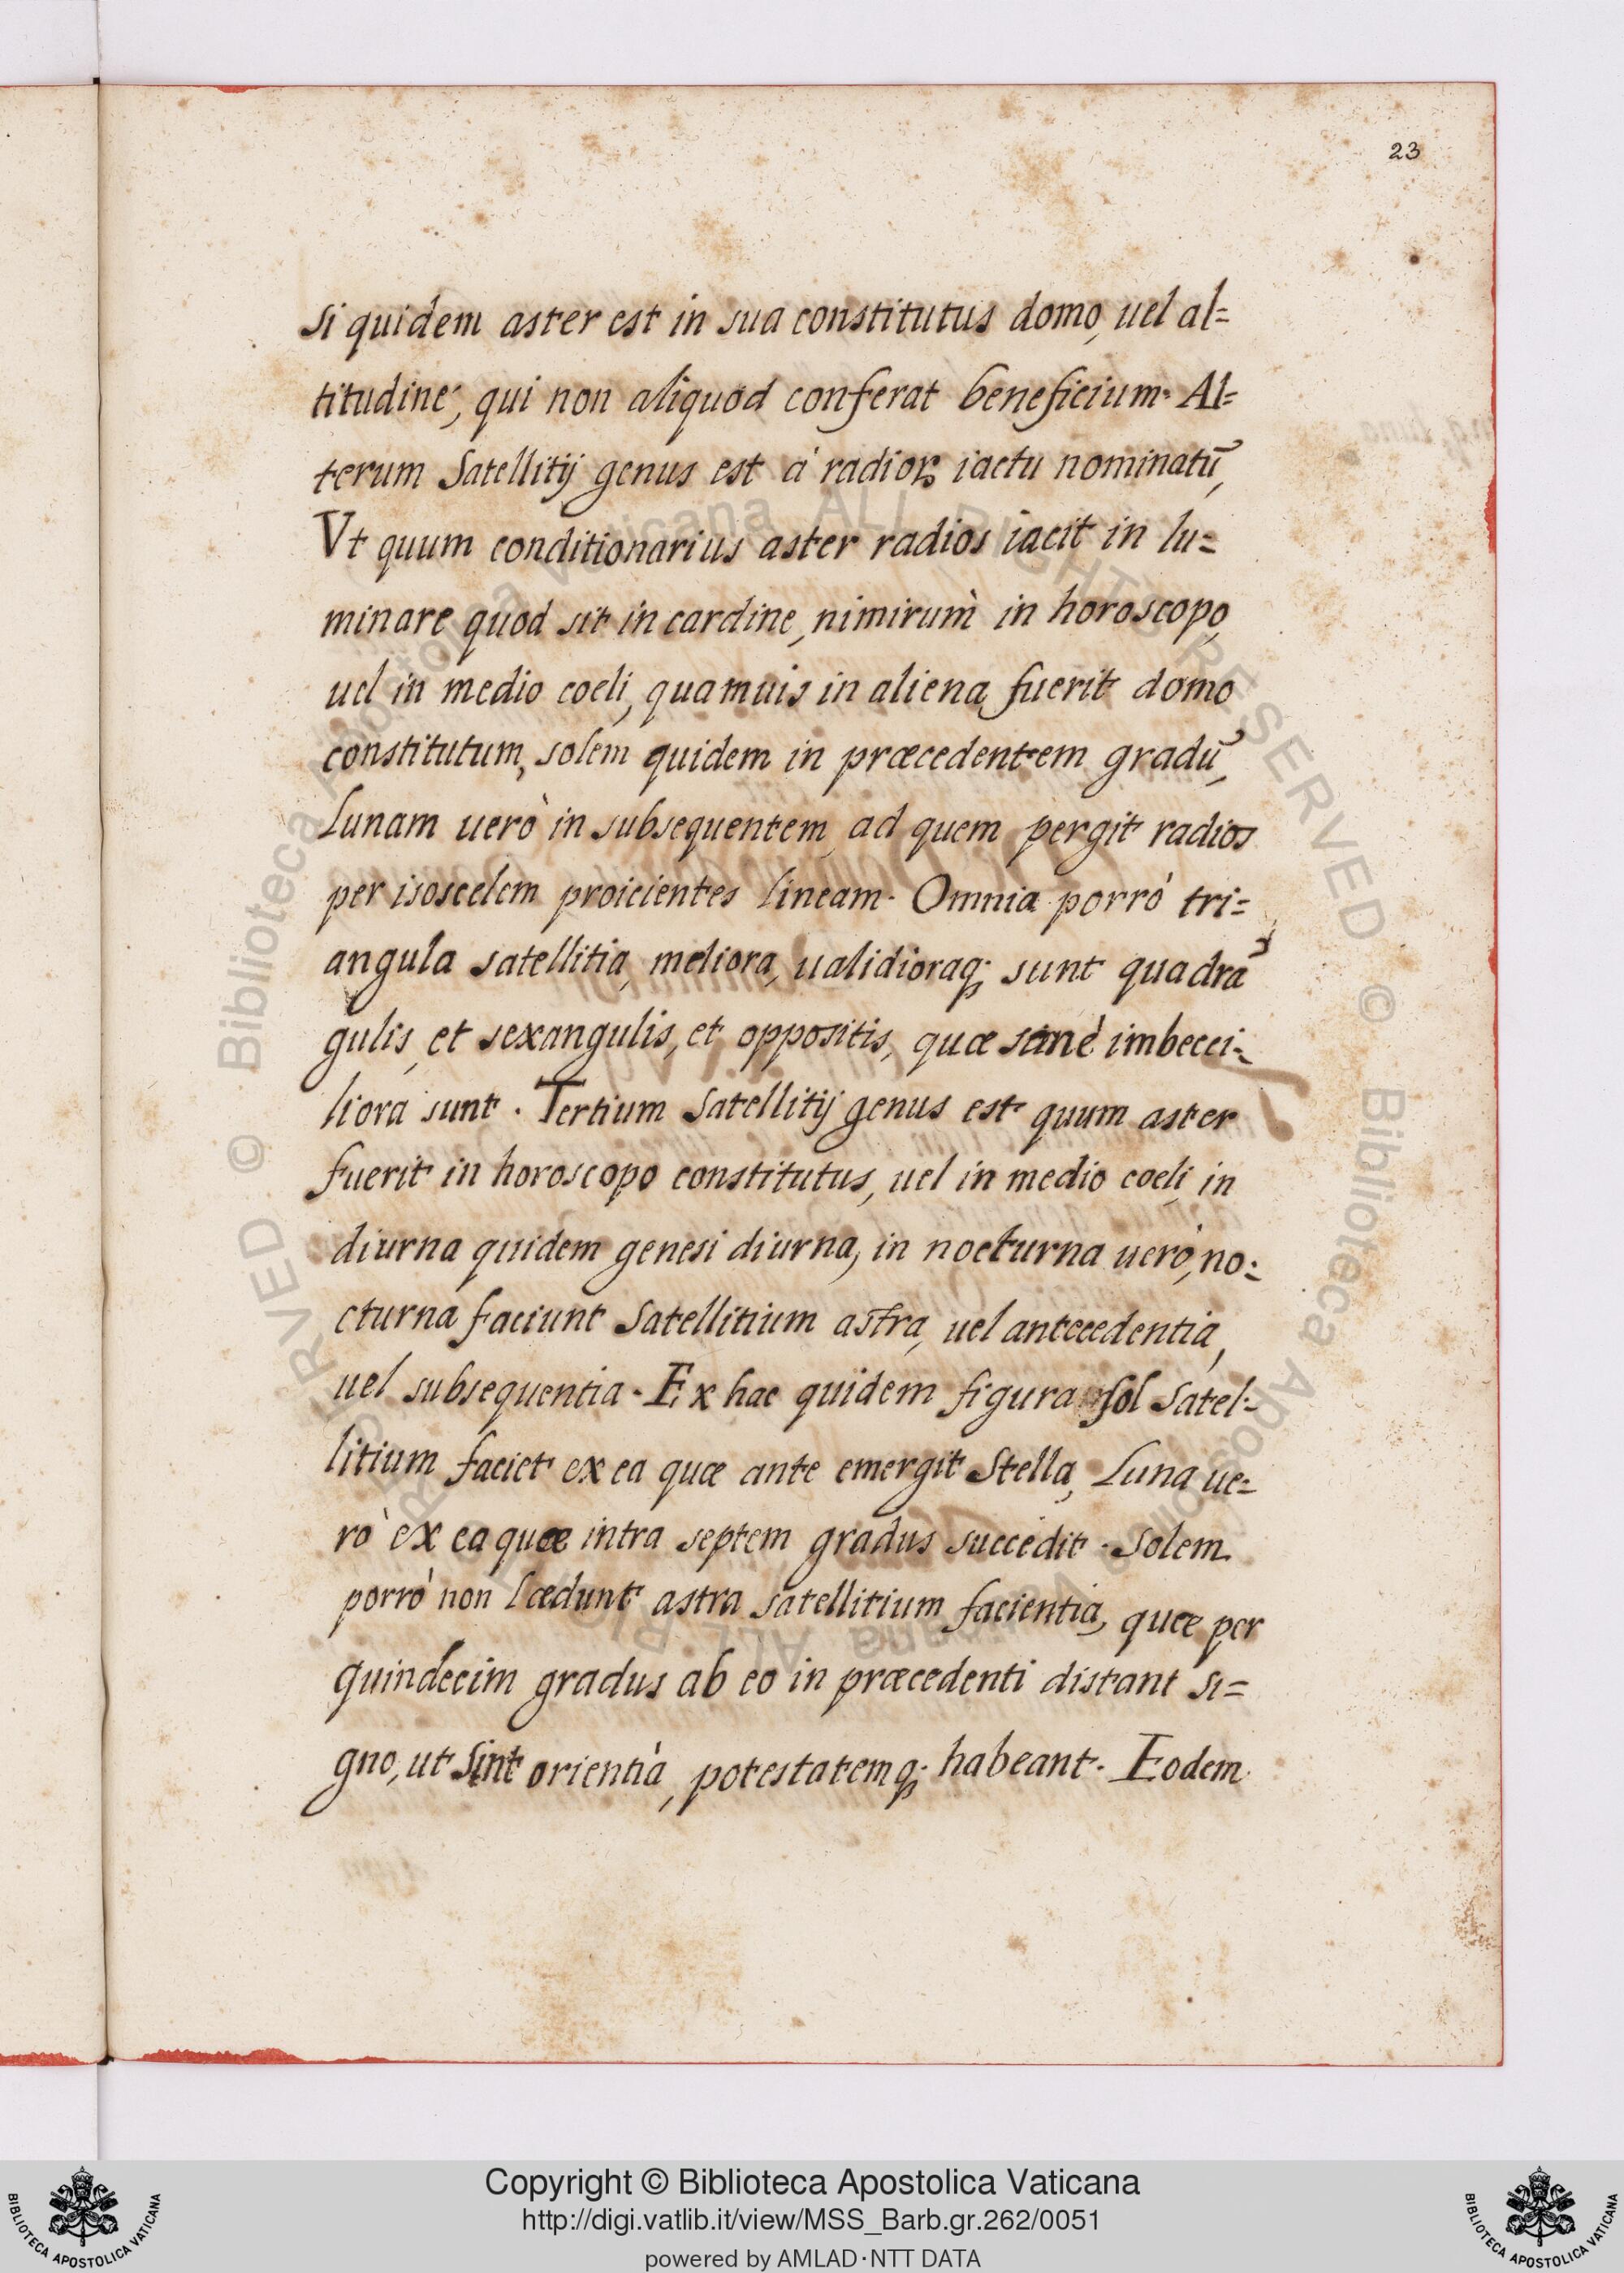 23
Si quidem aster est in sua constitutus domo, uel al=
titudine, qui non aliquod conferat beneficium. Al=
terum Satellitij genus est à radioꝝ iactu nominatū,
Vt quum conditionarius aster radios iacit in lu=
minare quod sit in cardine, nimirum in horoscopo,
uel in medio coeli, quamuis in aliena fuerit domo
constitutum, solem quidem in præcedentem gradū,
Lunam uerò in subsequentem, ad quem pergit radios
per isoscelem proicientes lineam. Omnia porrò tri=
angula satellitia, meliora, ualidioraq; sunt quadrā
gulis, et sexangulis, et oppositis, quæ sanè imbeci=
liora sunt. Tertium Satellitij genus est quum aster
fuerit in horoscopo constitutus, uel in medio coeli, in
diurna quidem genesi diurna, in nocturna uerò, no=
cturna faciunt Satellitium astra, uel antecedentia,
uel subsequentia. Ex hac quidem figura sol Satel=
litium faciet ex ea quæ ante emergit Stella, Luna ue=
rò ex ea quæ intra septem gradus succedit. Solem
porrò non lædunt astra satellitium facientia, quæ per
quindecim gradus ab eo in præcedenti distant si=
gno, ut sint orientia, potestatemq; habeant. Eodem
Copyright © Biblioteca Apostolica Vaticana
http://digi.vatlib.it/view/MSS_Barb.gr.262/0051
powered by AMLAD·NTT DATA
BIBLIOTECA APOSTOLICA VATICANA
BIBLIOTECA APOSTOLICA VATICANA